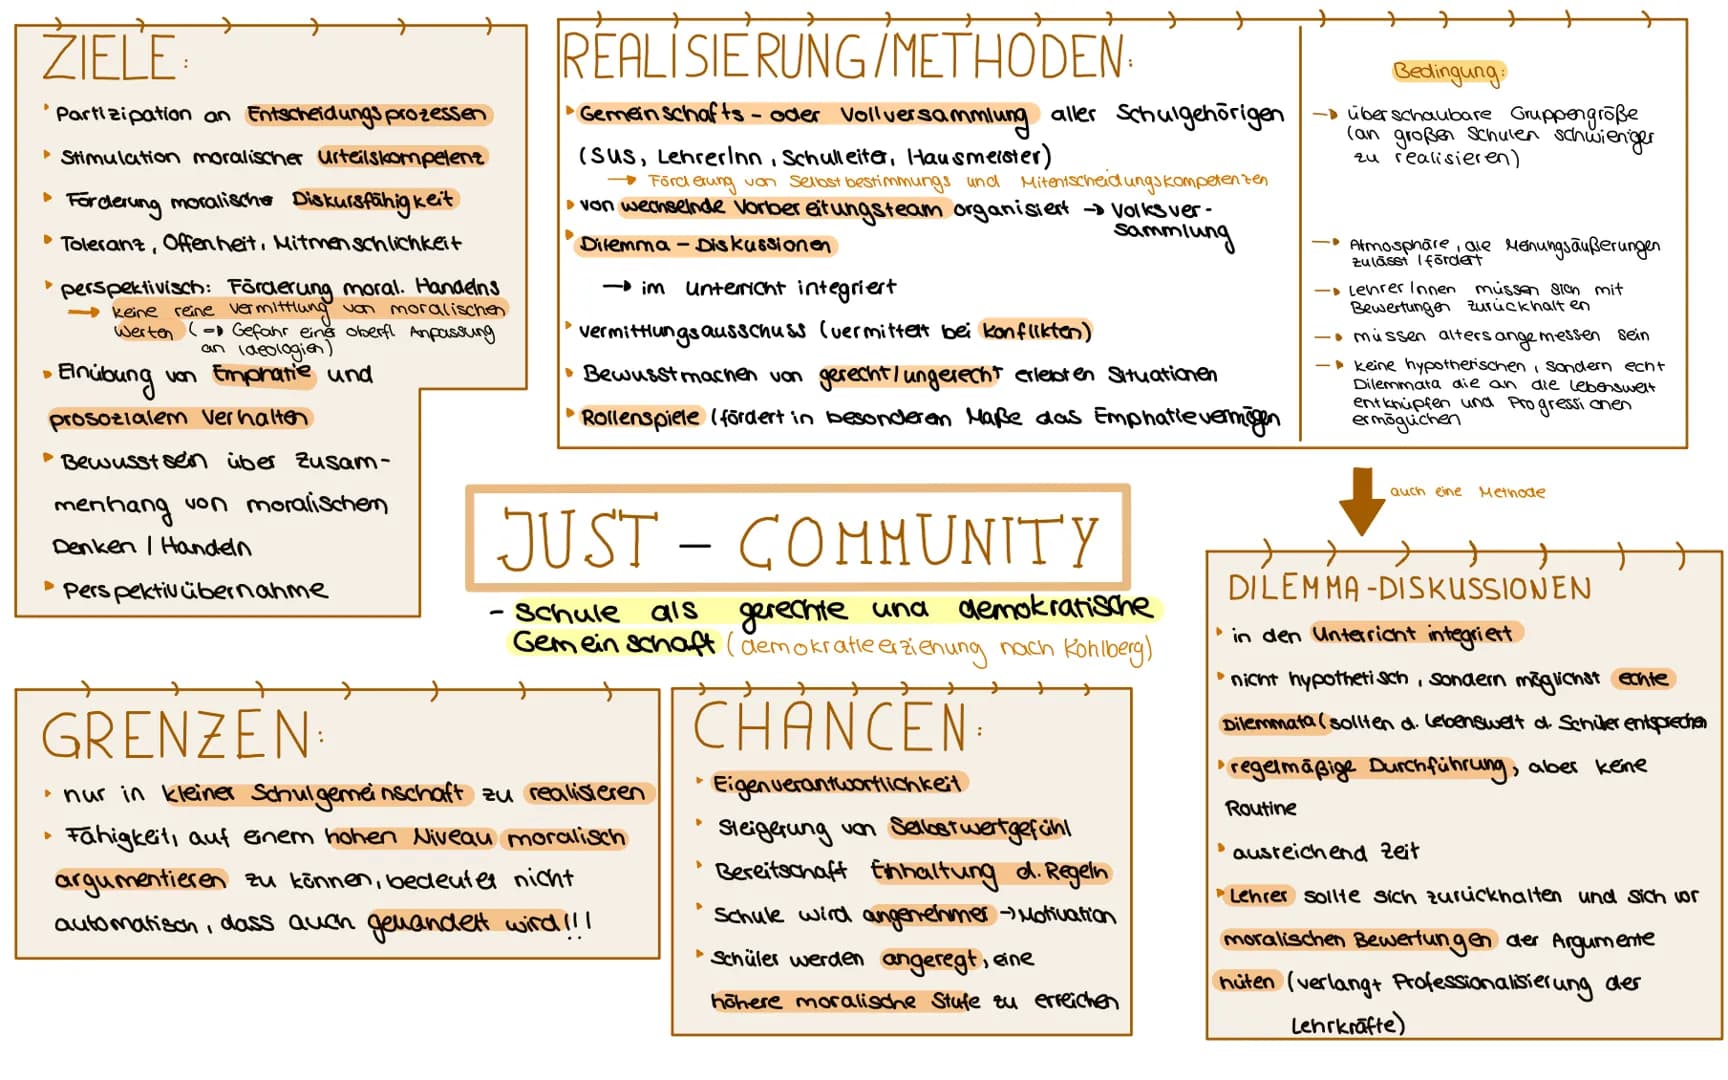 ZIELE:
Partizipation an Entscheidungsprozessen
Stimulation moralischer Urteilskompetenz
Förderung moralische Diskursfähigkeit
Toleranz, Offenheit, Mitmenschlichkeit
perspektivisch: Förderung moral. Handelns
→ keine reine Vermittlung von moralischen
Werten (→ Gefahr einer oberfl. Anpassung
an Ideologien)
Einübung von Emphatie und
prosozialem Verhalten
Bewusstsein über Zusam-
menhang von moralischem
Denken / Handeln
Perspektivübernahme
REALISIERUNG/METHODEN:
Gemeinschafts- oder Vollversammlung aller Schulgehörigen
(SUS, LehrerInn, Schulleiter, Hausmeister)
→ Förderung von Selbstbestimmungs und Mitentscheidungskompetenzen
von wechselnde Vorbereitungsteam organisiert → Volksver-
sammlung
Dilemma-Diskussionen
→ im Unterricht integriert
Vermittlungsausschuss (vermittelt bei Konflikten)
Bewusstmachen von gerecht/ungerecht erlebten Situationen
Rollenspiele (fördert in besonderen Maße das Emphatievermögen
Bedingung:
→ überschaubare Gruppengröße
(an großen Schulen schwieriger
zu realisieren)
→ Atmosphäre, die Meinungsäußerungen
zulässt / fördert
→ LehrerInnen müssen sich mit
Bewertungen zurückhalten
→ müssen altersangemessen sein
→ keine hypothetischen, sondern echt
Dilemmata die an die Lebenswelt
entknüpfen und Progressionen
ermöglichen
auch eine Methode
JUST - COMMUNITY
- Schule als gerechte und demokratische
Gemeinschaft (demokratieerziehung nach Kohlberg)
DILEMMA-DISKUSSIONEN
in den Unterricht integriert
nicht hypothetisch, sondern möglichst echte
Dilemmata (sollten d. Lebenswelt d. Schüler entsprechen
regelmäßige Durchführung, aber keine
Routine
ausreichend Zeit
Lehrer sollte sich zurückhalten und sich vor
moralischen Bewertungen der Argumente
hüten (verlangt Professionalisierung der
Lehrkräfte)
GRENZEN:
nur in kleiner Schulgemeinschaft zu realisieren
Fähigkeit, auf einem hohen Niveau moralisch
argumentieren zu können, bedeutet nicht
automatisch, dass auch gehandelt wird!!!
CHANCEN:
Eigenverantwortlichkeit
Steigerung von Selbstwertgefühl
Bereitschaft Einhaltung d. Regeln
Schule wird angenehmer → Motivation
Schüler werden angeregt, eine
höhere moralische Stufe zu erreichen